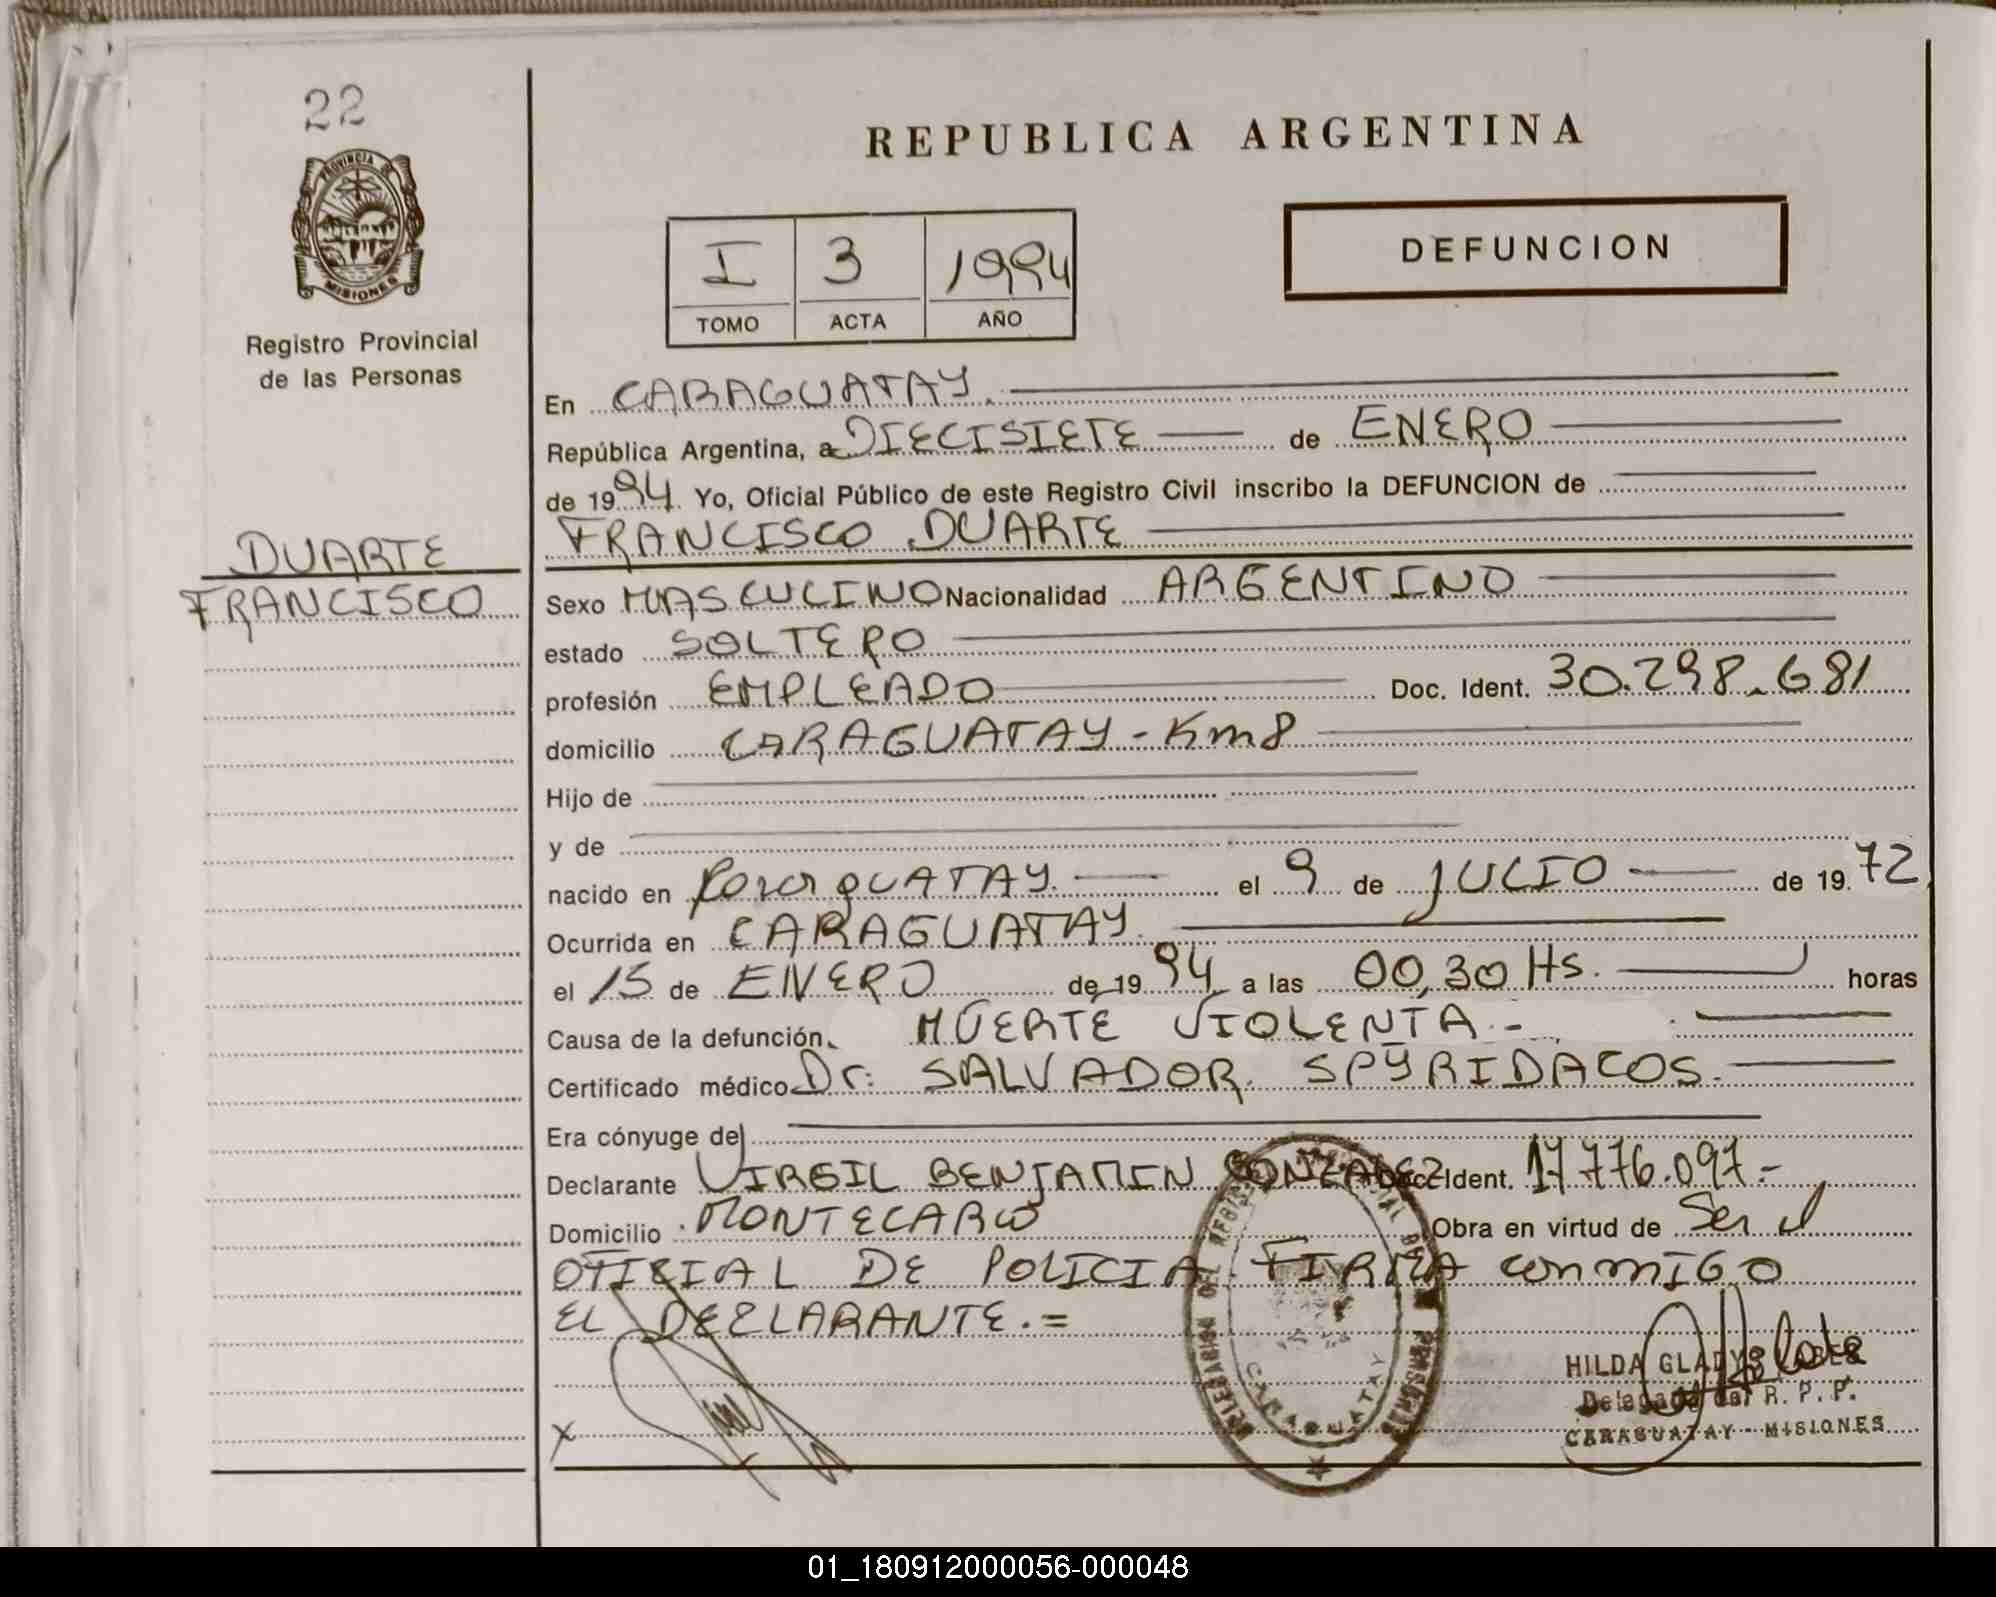 22
PROVINCIA DE
MISIONES
Registro Provincial
de las Personas
DUARTE
FRANCISCO
REPUBLICA ARGENTINA
I 3 1994
TOMO ACTA AÑO
DEFUNCION
En CARAGUATAY.
República Argentina, a DIECISIETE de ENERO
de 1994. Yo, Oficial Público de este Registro Civil inscribo la DEFUNCION de
FRANCISCO DUARTE
Sexo MASCULINO Nacionalidad ARGENTINO
estado SOLTERO
profesión EMPLEADO Doc. Ident. 30.298.681
domicilio CARAGUATAY - Km 8
Hijo de
y de
nacido en CaraguATAY. el 9 de JULIO de 1972
Ocurrida en CARAGUATAY.
el 15 de ENERO de 1994 a las 00,30 Hs. horas
Causa de la defunción MUERTE VIOLENTA.-
Certificado médico Dr. SALVADOR SPYRIDACOS.
Era cónyuge de
Declarante VIRGIL BENJAMIN GONZALEZ Doc. Ident. 17.776.097.-
Domicilio MONTECARLO Obra en virtud de Ser el
OFICIAL DE POLICIA. FIRMA conmIGO
EL DECLARANTE.=
X
CARAGUATAY
HILDA GLADYS
Delegada del R. P. P.
CARAGUATAY - MISIONES
01_180912000056-000048